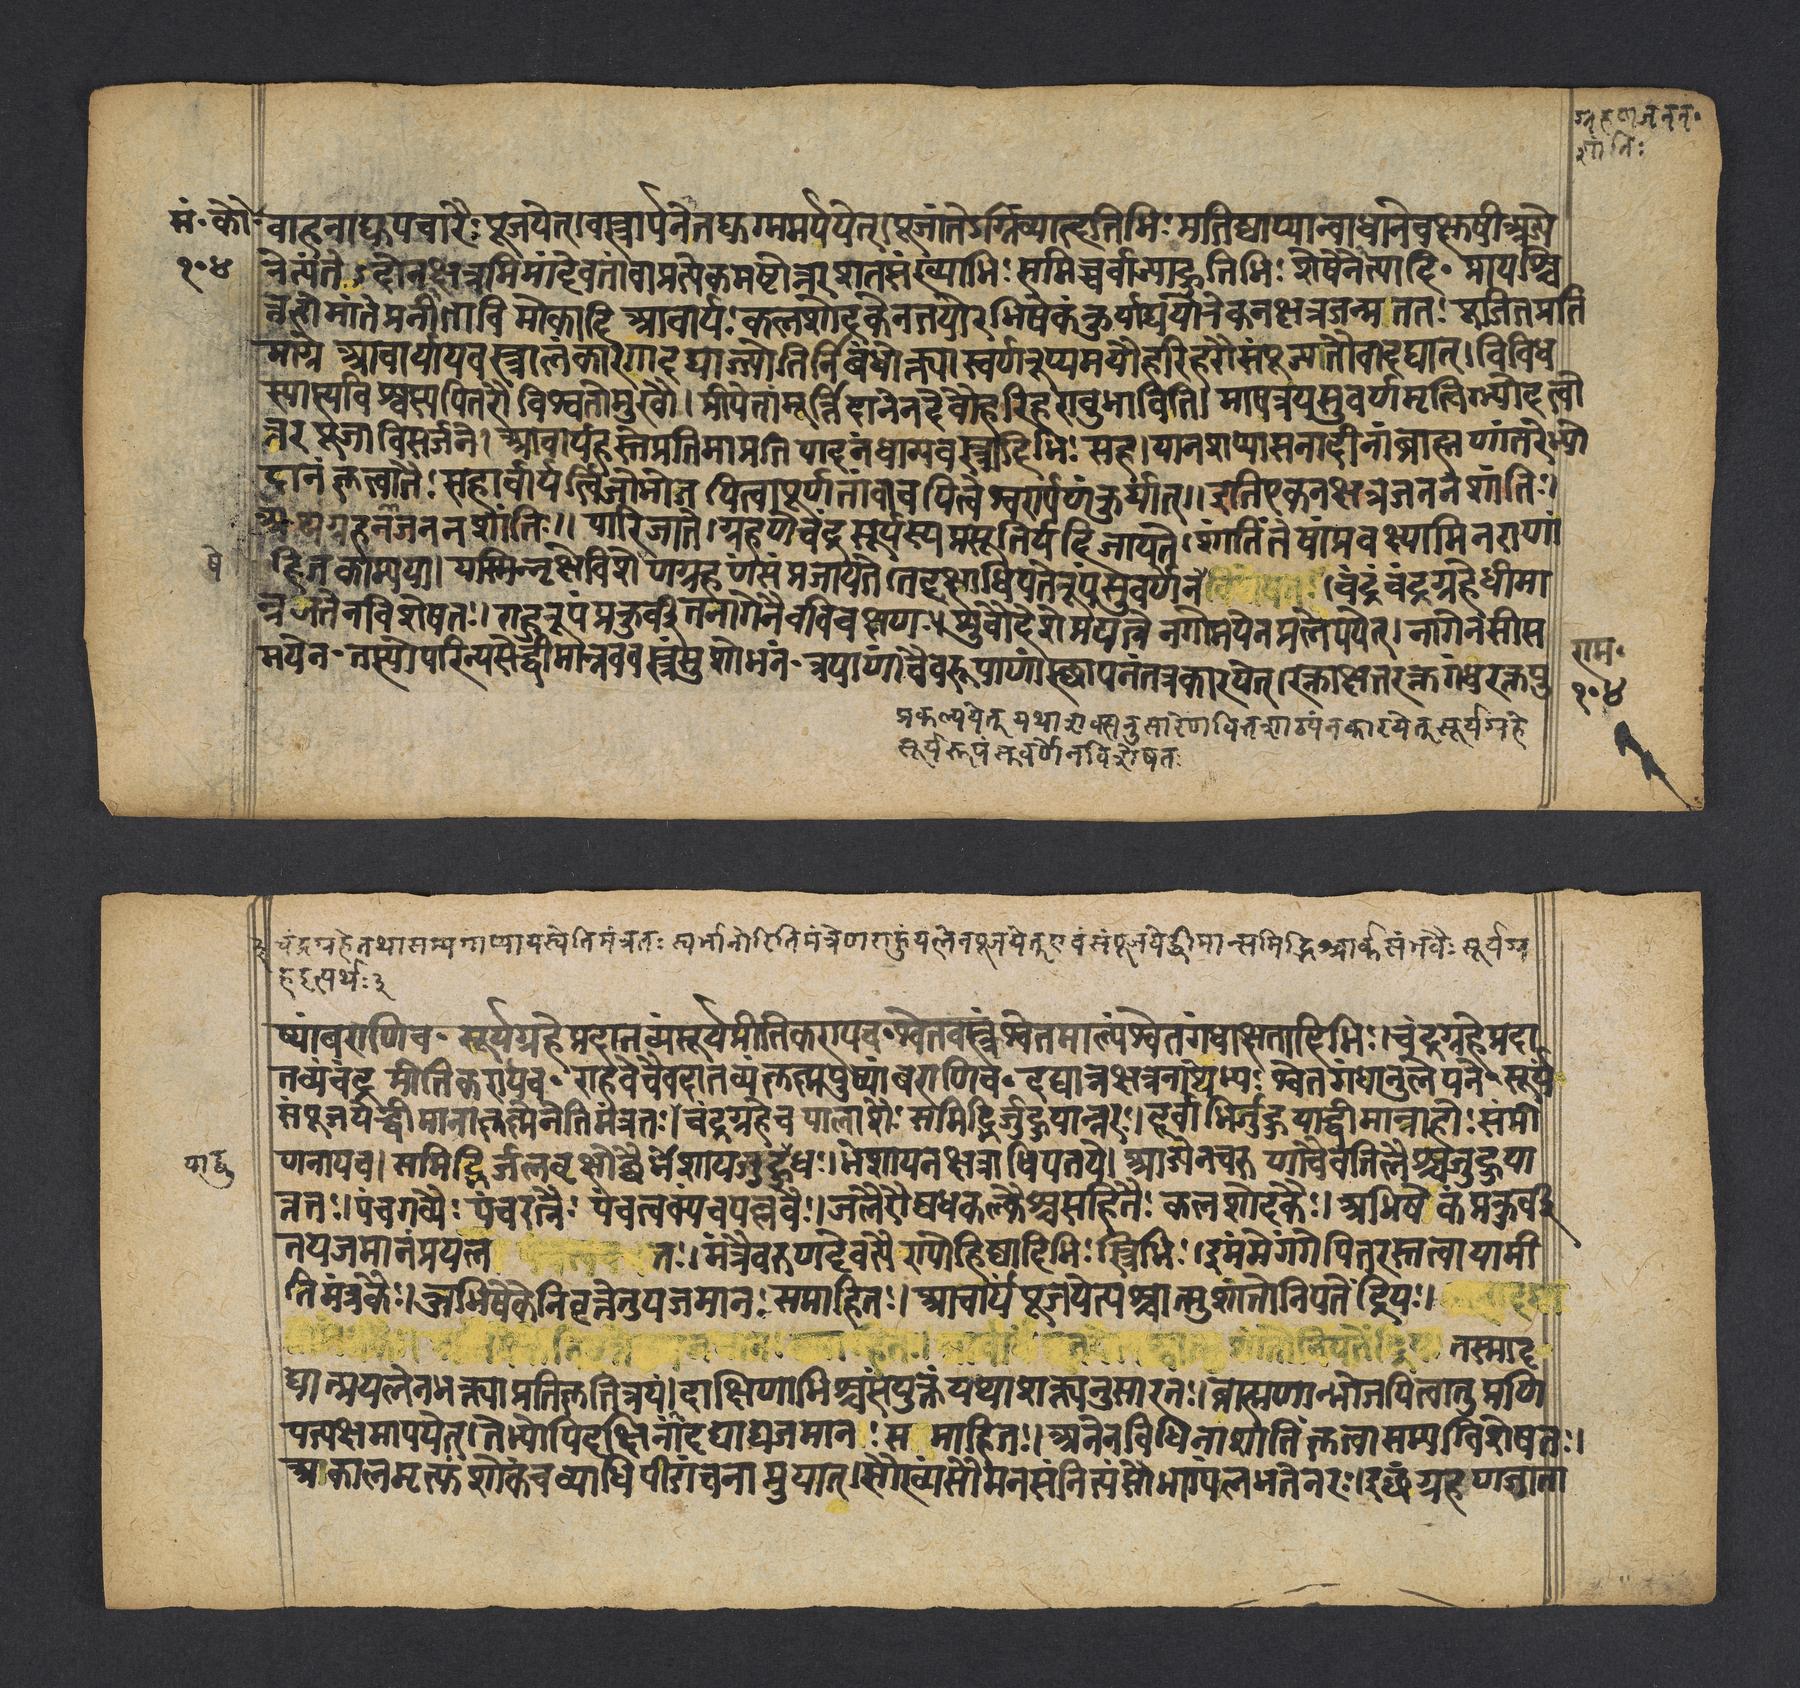 ग्रहणजनन॰
शांतिः
सं॰ कौ॰
१०४
वाहनाद्युपचारैः पूजयेत्। वस्त्रार्पनेन युग्ममर्पयेत्। पूजांतेऽग्निं व्याहृतिभिः
दोनक्षत्रमिमांदेवतांवाप्रत्येकमष्टोत्तरशतसंख्याभिः समिच्चर्वाज्याहुतिभिः शेषेनेत्यादि॰ प्रायश्चि
आचार्यः कलशोदकेनतयोरभिषेकं कुर्याद्ययोरेकनक्षत्रजन्म ततः पूजितप्रति
माग्रे आचार्यायवस्त्रालंकारगादद्याज्योतिर्निबंधोक्त्या स्वर्णरूप्यमयौहरिहरौसंपूज्यातौवादद्यात्। विविध
स्यास्यविश्वस्यपितरौ विश्वतोमुखौ। प्रीयेतांमूर्त्तिदानेनदेवौहरिहरावुभाविति। माषत्रयसुवर्णमृत्विग्भ्योदत्वो
त्तरपूजाविसर्जने। आचार्यहस्तेप्रतिमाप्रतिपादनंधान्यवस्त्रादिभिः सह। यानशय्यासनादीनांब्राह्मणांतरेभ्यो
दानं कृत्वातैः सहाचार्यर्त्विजोभोजयित्वापूर्णतांवाचयित्वेश्वरार्पणंकुर्यात्॥ इतिएकनक्षत्रजननशांतिः।
अथग्रहनजननशांतिः॥ पारिजाते। ग्रहणेचंद्रसूर्यस्यप्रसूतिर्यदिजायते। शांतिंतेषांप्रवक्ष्यामिनराणां
षे
हितकाम्यया। यस्मिनृक्षेविशेणग्रहणंसंप्रजायते तदृक्षाधिपतेरूपंसुवर्णेन चंद्रंचंद्रग्रहेधीमा
न्रजतेनविशेषतः। राहुरूपंप्रकुर्वीतनागेनैवविचक्षणः। शुचौदेशेप्रयत्नेनगोमयेनप्रलेपयेत्। नागेनसीस
मयेन॰ तस्योपरिन्यसेद्धीमान्नववस्त्रंसुशोभनं॰ त्रयाणांचैवरूपाणांस्थापनंतत्रकारयेत्। रक्ताक्षतंरक्तगंधंरक्तपु
राम॰
१०४
प्रकल्पयेत् यथाशक्त्यनुसारेणवित्तशाठ्यंनकारयेत् सूर्यग्रहे
सूर्यरूपंसुवर्णेनविशेषतः
चंद्रग्रहेतथासम्यगाप्यायस्वेतिमंत्रतः स्वर्भानोरितिमंत्रेणराहुंयत्नेनपूजयेत् एवंसंपूजयेद्धीमान्समिद्भिश्चार्कसंभवैः सूर्यग्र
हइत्यर्थः ३
ष्पांबराणिच॰ सूर्यग्रहेप्रदातव्यंसूर्यप्रीतिकरायच॰ श्वेतवस्त्रंश्वेतमाल्यंश्वेतगंधाक्षतादिभिः। चंद्रग्रहेप्रदा
तव्यंचंद्रप्रीतिकरायच॰ राहवेचैवदातव्यंकृष्णपुष्पांबराणिच॰ दद्यान्नक्षत्रनाथेभ्यः श्वेतगंधानुलेपने॰ सूर्यं
संपूजयेद्धीमानाकृष्णेनेतिमंत्रतः। चंद्रग्रहेचपालाशैः समिद्भिर्जुहुयान्नरः। दूर्वाभिर्जुहुयाद्धीमान्राहोः संप्री
याद्बु
णनायच। समिद्भिर्जलवृक्षोत्थैर्भेशायजुहुद्बुधः। भेशायनक्षत्राधिपतये। आज्येनचरुणाचैवतिलैश्चजुहुया
त्ततः। पंचगव्यैः पंचरत्नैः पंचत्वक्पंचपल्लवैः। जलैरौषधकल्कैश्चसहितैः कलशोदकैः। अभिषेकंप्रकुर्वी
तयजमानंप्रयत्न तः। मंत्रैर्वरुणदैवत्यैरापोहिष्ठादिभिः स्त्रिभिः। इमंमेगंगेपितरस्तत्वायामी
तिमंत्रकैः। अभिषेकेनिवृत्तेतुयजमानः समाहितः। आचार्यंपूजयेत्पश्चात्सुशांतोनियतेंद्रियः।
तस्माद
द्यात्प्रयत्नेनभक्त्याप्रतिकृतित्रयं। दाक्षिणाभिश्चसंयुक्तंयथाशक्त्यनुसारतः। ब्राह्मणान्भोजयित्वातुप्रणि
पत्यक्षमापयेत्। तेभ्योपिदक्षिनांदद्याद्यजमानः समाहितः। अनेनविधिनाशांतिंकृत्वासम्यग्विशेषतः।
अकालमृत्युंशोकंचव्याधिपीडांचनाप्नुयात्। सौख्यंसौमनसंनित्यंसौभाग्यंलभतेनरः। इत्थंग्रहणजाता